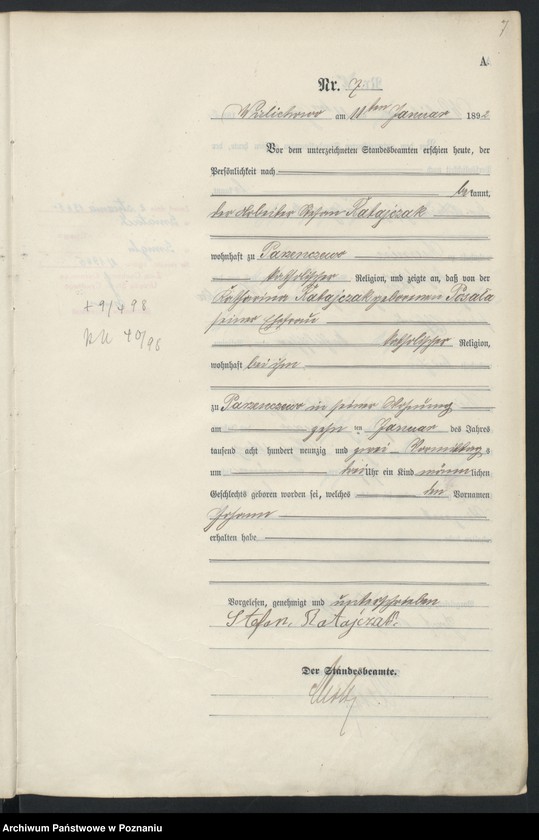 7
A
Nr. 7
Wielichowo am 11ten Januar 1892
Vor dem unterzeichneten Standesbeamten erschien heute, der
Persönlichkeit nach
bekannt,
der Arbeiter Stefan Ratajczak
wohnhaft zu Parzenczewo
katholischer Religion, und zeigte an, daß von der
Katharina Ratajczak geborenen
seiner Ehefrau
katholischer Religion,
wohnhaft bei ihm
zu Parzenczewo in seiner Wohnung
am zehn ten Januar des Jahres
tausend acht hundert neunzig und zwei Vormittag s
um drei Uhr ein Kind männlichen
Geschlechts geboren worden sei, welches den Vornamen
Johann
erhalten habe
+ 9/4 98
40/98
Vorgelesen, genehmigt und unterschrieben
Stefan Ratajczak.
Der Standesbeamte.
Archiwum Państwowe w Poznaniu